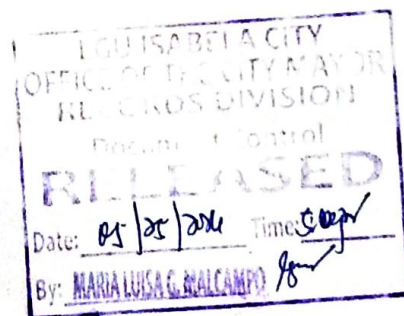 LGU ISABELA CITY
OFFICE OF THE CITY MAYOR
RECORDS DIVISION
Document Control
RELEASED
Date: 05/25/2026 Time:
By: MARIA LUISA G. MALCAMPO